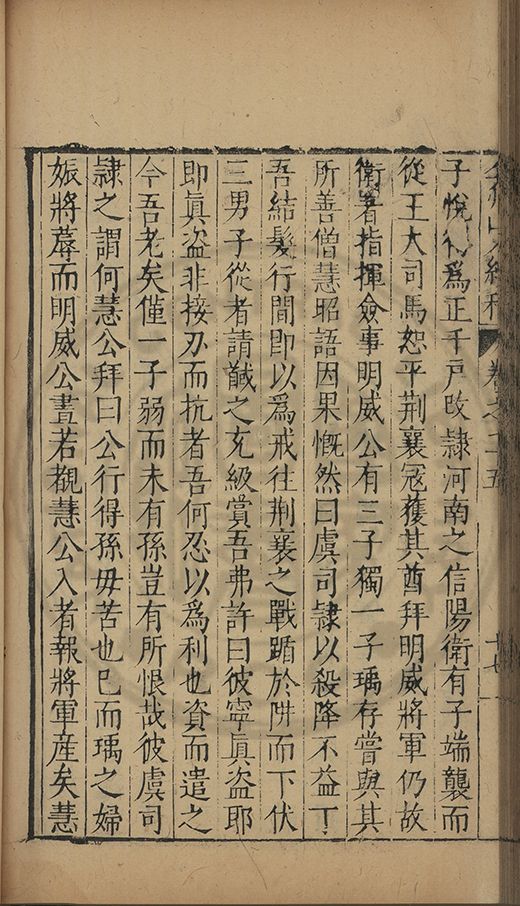 弇州山人續稿 卷之一百十五 十七
子悅得爲正千戸改隸河南之信陽衛有子端襲而
從王大司馬恕平荆襄冦獲其酋拜明威將軍仍故
衛署指揮僉事明威公有三子獨一子瑀存嘗與其
所善僧慧昭語因果慨然曰虞司隸以殺降不益丁
吾結髮行間即以爲戒徃荆襄之戰踲於阱而下伏
三男子從者請馘之充級賞吾弗許曰彼寧眞盗耶
即眞盗非接刃而抗者吾何忍以爲利也資而遣之
今吾老矣僅一子弱而未有孫豈有所恨哉彼虞司
隸之謂何慧公拜曰公行得孫毋苦也巳而瑀之婦
娠將蓐而明威公晝若覩慧公入者報將軍産矣慧